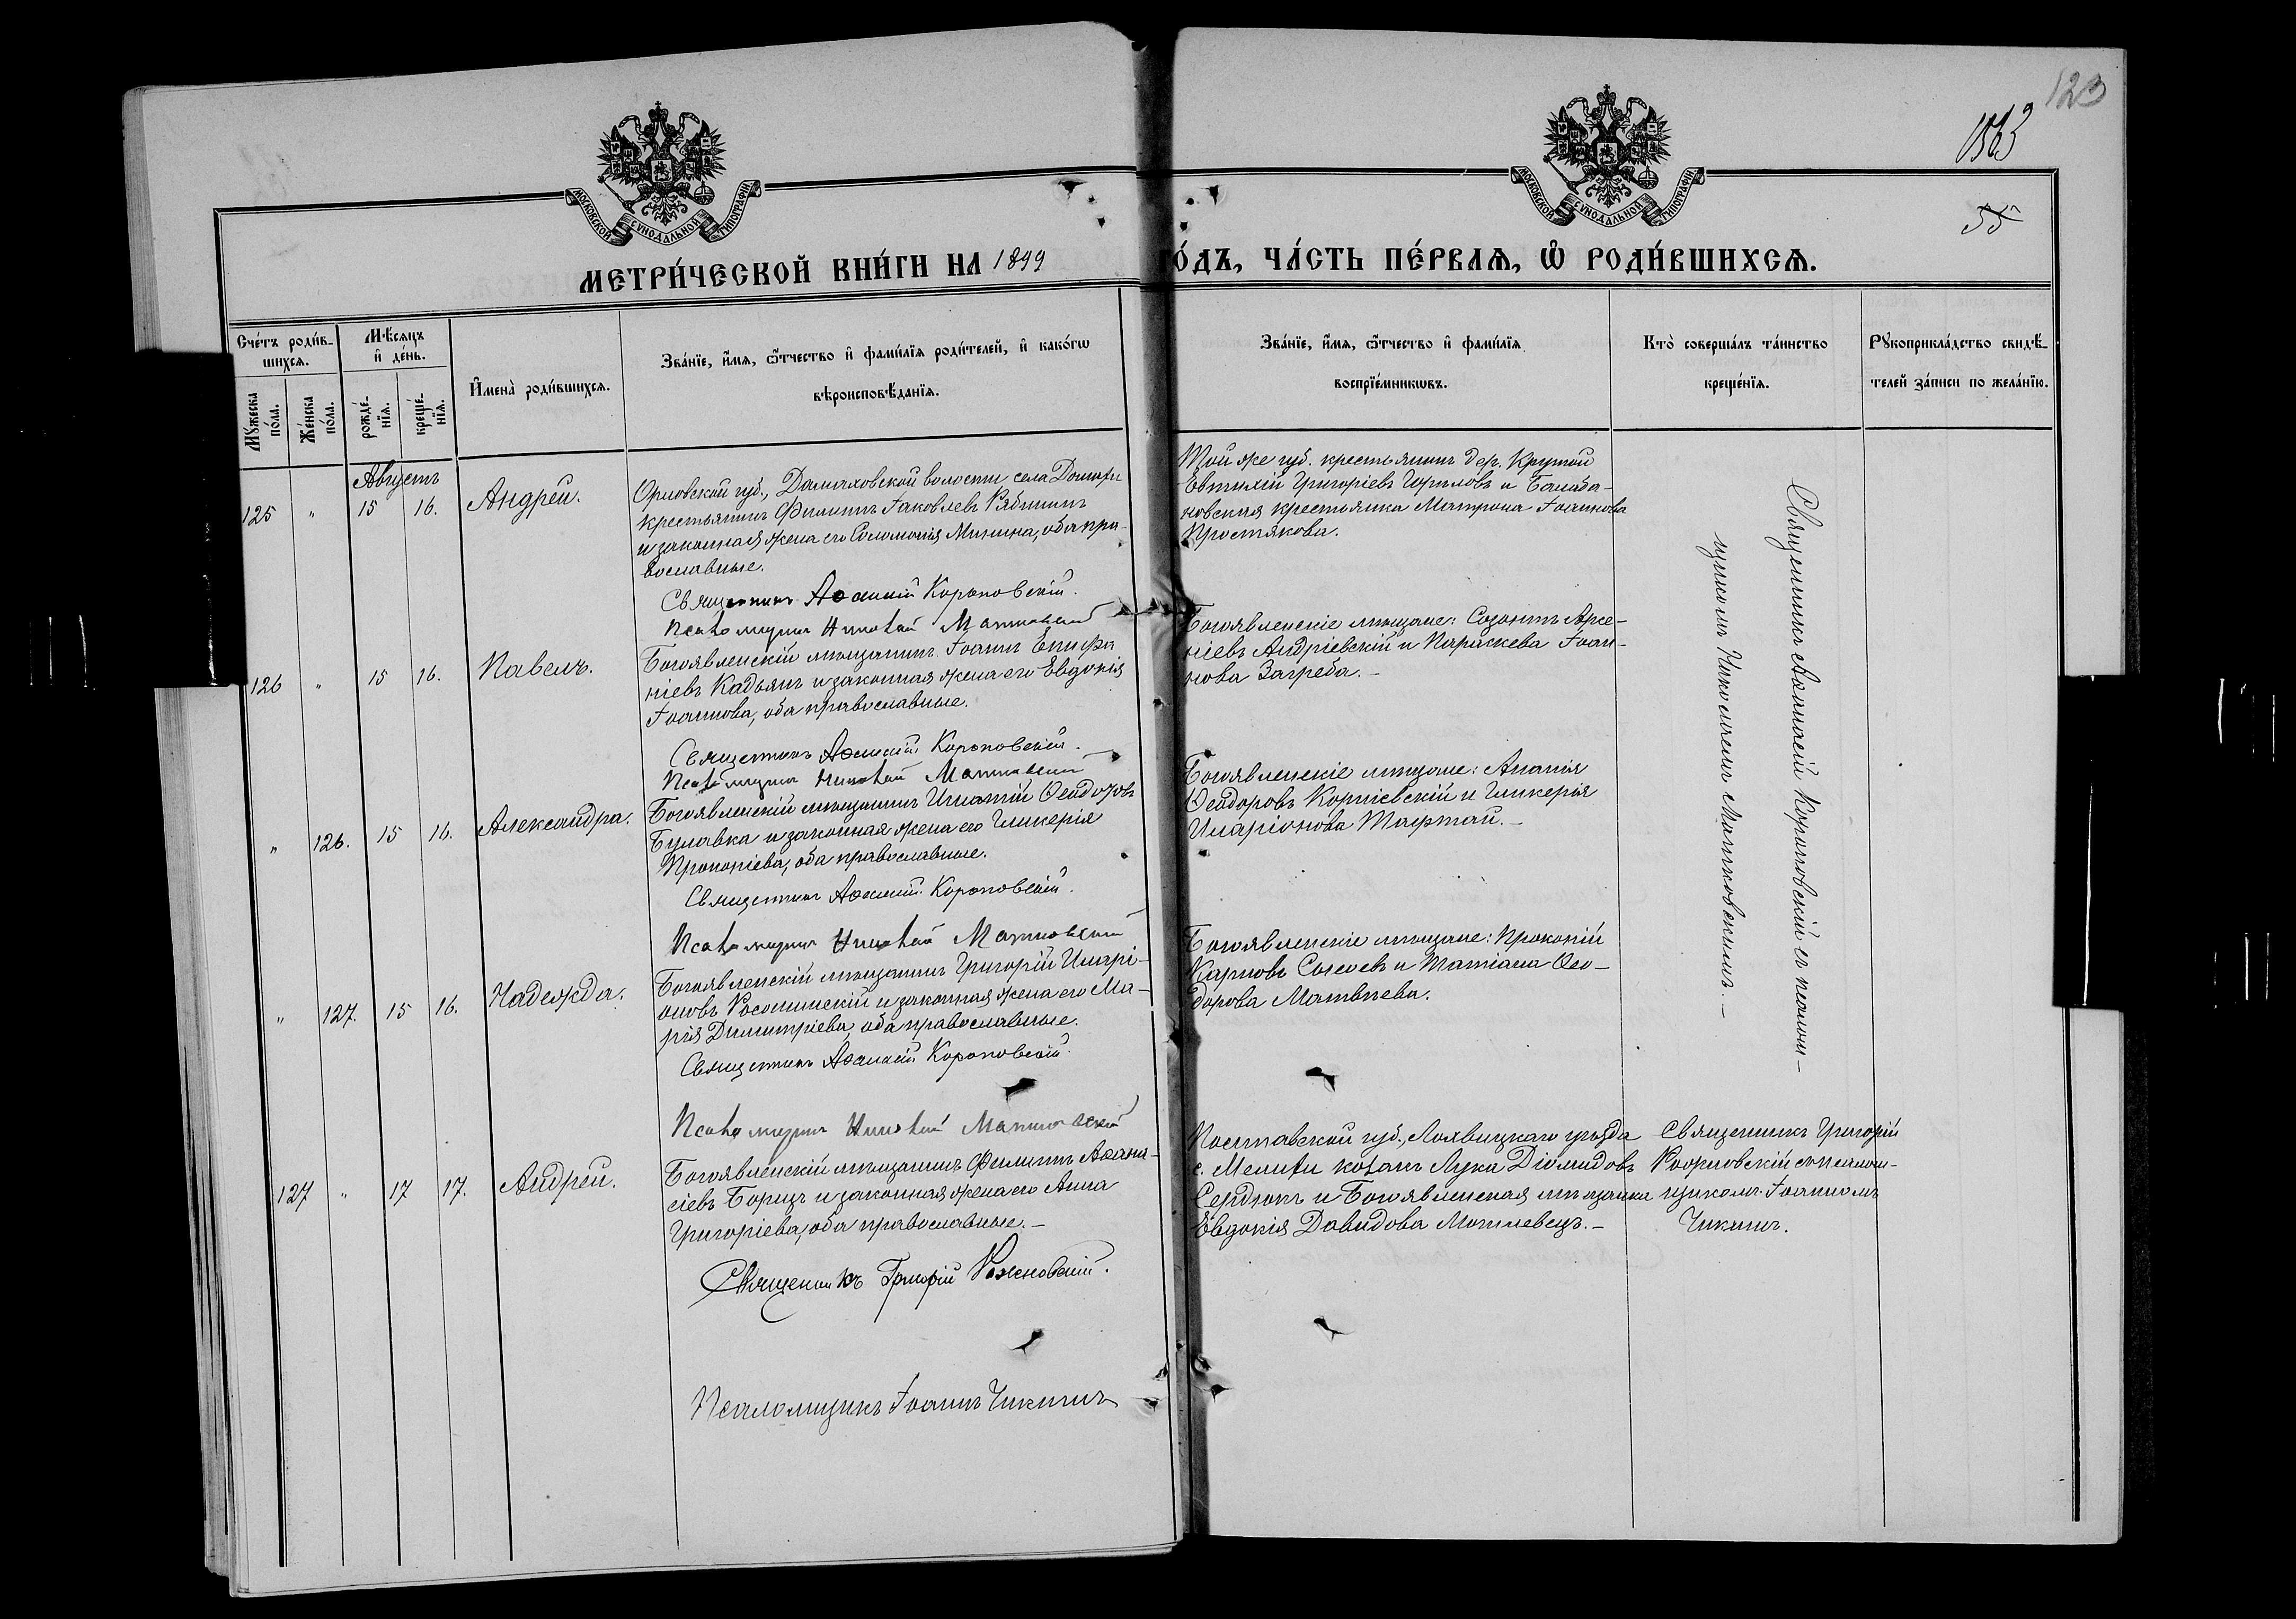 123
1563
55
МОСКОВСКОЙ СѴНОДАЛЬНОЙ ТИПОГРАФІИ.
МОСКОВСКОЙ СѴНОДАЛЬНОЙ ТИПОГРАФІИ.
МЕТРИ́ЧЕСКОЙ КНИ́ГИ НА 1899 ГО́ДЪ, ЧА́СТЬ ПЕ́РВАѦ, Ѡ РОДИ́ВШИХСѦ.
Сче́тъ роди́в-
шихсѧ.
Мѣ́сѧцъ
и҆ де́нь.
Мꙋ́жеска
по́ла.
Же́нска
по́ла.
рожде́-
нїѧ.
креще́-
нїѧ.
И҆мена̀ роди́вшихсѧ.
Зва́нїе, и҆́мѧ, ѻ҆́тчество и҆ фами́лїѧ роди́телей, и҆ како́гѡ
вѣроисповѣ́данїѧ.
Зва́нїе, и҆́мѧ, ѻ҆́тчество и҆ фами́лїѧ
воспрїе́мникѡвъ.
Кто̀ соверша́лъ та́инство
креще́нїѧ.
Рꙋкоприкла́дство свидѣ́-
телей за́писи по жела́нїю.
Августъ
125 " 15 16. Андрей.
Орловской губ., Домаховской волости села
крестьянинъ Филиппъ Іаковлевъ Рябининъ
и законная жена его Соломонія Минина, оба пра-
вославные.
Священникъ Аѳанасій Короповскій.
Псаломщикъ Николай Матковскій
Той же губ. крестьянинъ дер. Крутой
Евтихій Григоріевъ и
крестьянка Матрона Іоаннова
Простякова.
Священникъ Аѳанасій Короповскій съ псалом-
щикомъ Николаемъ Матковскимъ.—
126 " 15 16. Павелъ.
Богоявленскій мѣщанинъ Іоаннъ Епифа
ніевъ Кадьянъ и законная жена его Евдокія
Іоаннова, оба православные.
Священникъ Аѳанасій Короповскій.
Псаломщикъ Николай Матковскій
Богоявленскіе мѣщане: Созонтъ Арсе-
ніевъ Андріевскій и Параскева Іоан-
нова Загреба.—
" 126. 15 16. Александра.
Богоявленскій мѣщанинъ Игнатій Ѳеодоровъ
Булавка и законная жена его Гликерія
Прокопіева, оба православные.
Священникъ Аѳанасій Короповскій.
Псаломщикъ Николай Матковскій
Богоявленскіе мѣщане: Ананія
Ѳеодоровъ Корніевскій и Гликерія
Иларіонова Тафтай.—
" 127. 15 16. Надежда.
Богоявленскій мѣщанинъ Григорій Иларі-
оновъ и законная жена его Ма-
рія Димитріева, оба православные.
Священникъ Аѳанасій Короповскій.
Псаломщикъ Николай Матковскій
Богоявленскіе мѣщане: Прокопій
Карповъ и Татіана Ѳео-
дорова Матвѣева.
127 " 17 17. Андрей.
Богоявленскій мѣщанинъ Филиппъ Аѳана-
сіевъ Борщъ и законная жена его Анна
Григоріева, оба православные.—
Священникъ Григорій
Псаломщикъ Іоаннъ Чикинъ
Полтавской губ., Лохвицкаго уѣзда
с. козакъ Лука Діомидовъ
Сердюкъ и Богоявленская мѣщанка
Евдокія Давидова Могилевецъ.—
Священникъ Григорій
съ псалом-
щикомъ Іоанномъ
Чикинъ.